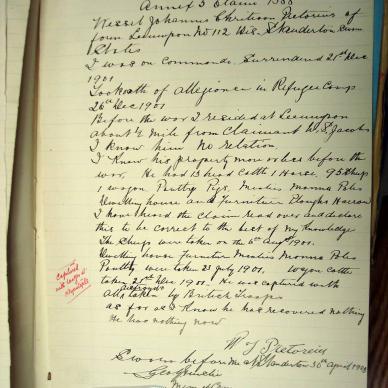 Annex 3 Claim 1588
Wessel Johannes Christian Pretorius of
farm Leeuwpon No 112 Wk. S Standerton Sworn
States
I was on Commando Surrendered 21st Dec
1901
Took oath of allegiance in Refugee Camp
26th Dec 1901.
Before the war I resided at Leeuwpon
about ½ mile from Claimant W. S. Jacobs
I know him No relation.
I knew his property more or less before the
war. He had 13 head cattle 1 Horse. 95 Sheep
1 wagon Poultry Pigs, Mealies Manna Peas
Dwelling house and Furniture Ploughs Harrow
I have heard the Claim read over and declare
this to be correct to the best of my Knowledge
The Sheep were taken on the 6th Augt 1901.
Dwelling house Furniture Mealies Manna Peas
Poultry were taken 23 July 1901. Wagon cattle
taken 21st Dec 1901. He was captured with
all taken by British troops
as far as I know he has recovered nothing
He has nothing now
Captured
with wagon at
W J Pretorius
Sworn before me at Standerton 30th April 1903